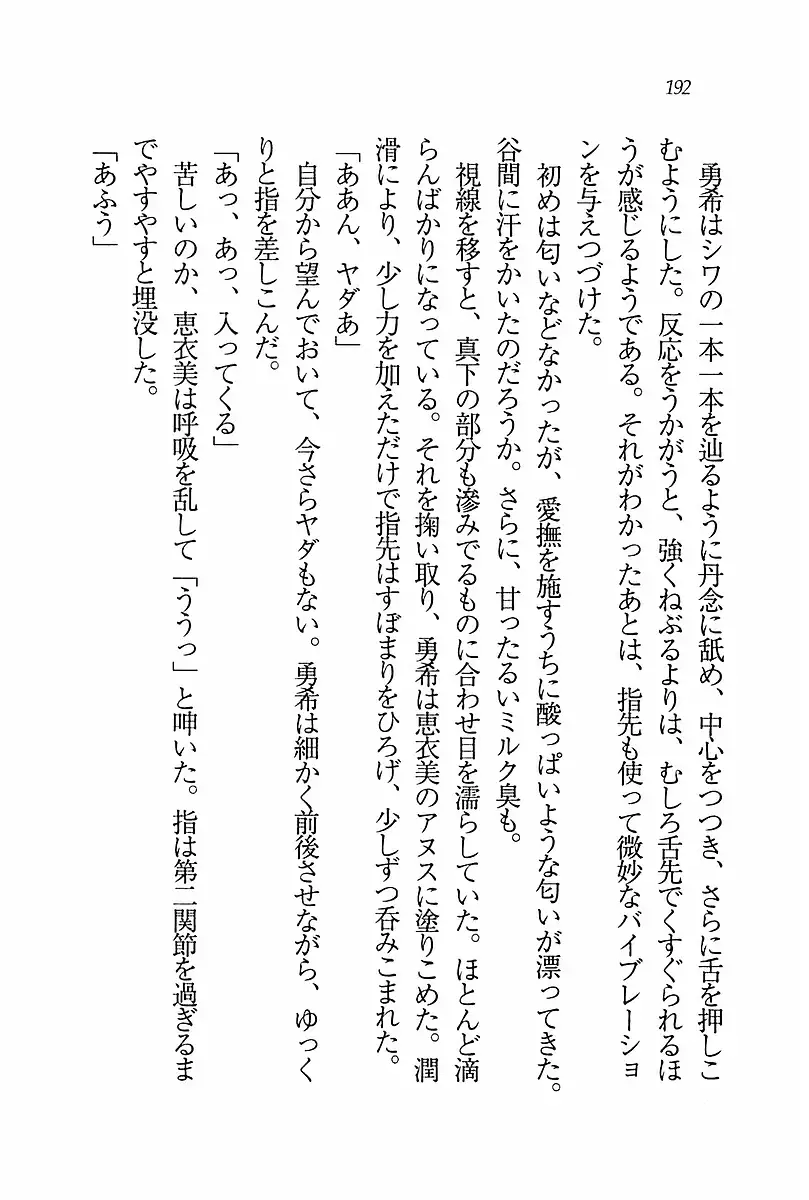 192
勇希はシワの一本一本を辿るように丹念に舐め、中心をつつき、さらに舌を押しこ
むようにした。反応をうかがうと、強くねぶるよりは、むしろ舌先でくすぐられるほ
うが感じるようである。それがわかったあとは、指先も使って微妙なバイブレーショ
ンを与えつづけた。
初めは匂いなどなかったが、愛撫を施すうちに酸っぱいような匂いが漂ってきた。
谷間に汗をかいたのだろうか。さらに、甘ったるいミルク臭も。
視線を移すと、真下の部分も滲みでるものに合わせ目を濡らしていた。ほとんど滴
らんばかりになっている。それを掬い取り、勇希は恵衣美のアヌスに塗りこめた。潤
滑により、少し力を加えただけで指先はすぼまりをひろげ、少しずつ呑みこまれた。
「ああん、ヤダぁ」
自分から望んでおいて、今さらヤダもない。勇希は細かく前後させながら、ゆっく
りと指を差しこんだ。
「あっ、あっ、入ってくる」
苦しいのか、恵衣美は呼吸を乱して「ううっ」と呻いた。指は第二関節を過ぎるま
でやすやすと埋没した。
「あふう」